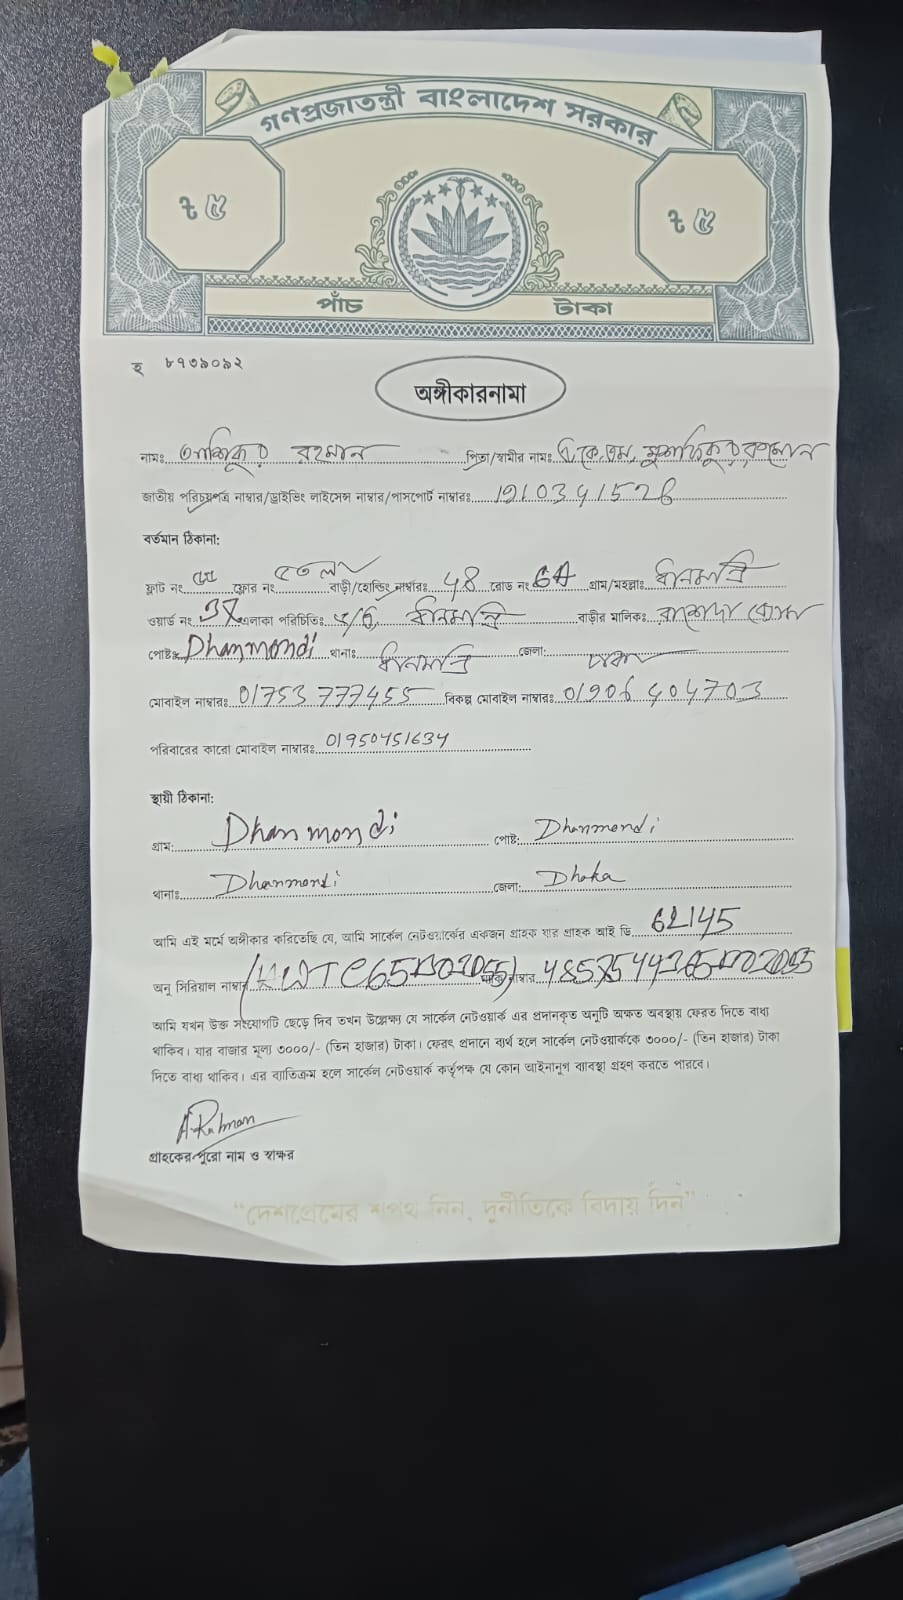 গণপ্রজাতন্ত্রী বাংলাদেশ সরকার
৳ ৫ ৳ ৫
পাঁচ টাকা
হ ৮৭৩৯০৯২
অঙ্গীকারনামা
নামঃ আশিকুর রহমান পিতা/স্বামীর নামঃ এ.কে.এম. মুশফিকুর রহমান
জাতীয় পরিচয়পত্র নাম্বার/ড্রাইভিং লাইসেন্স নাম্বার/পাসপোর্ট নাম্বারঃ 1910341526
বর্তমান ঠিকানা:
ফ্লাট নং ফ্লোর নং ৫তলা বাড়ী/হোল্ডিং নাম্বারঃ 48 রোড নং 6A গ্রাম/মহল্লাঃ ধানমন্ডি
ওয়ার্ড নং এলাকা পরিচিতিঃ ধানমন্ডি বাড়ীর মালিকঃ
পোষ্টঃ Dhanmondi থানাঃ ধানমন্ডি জেলা: ঢাকা
মোবাইল নাম্বারঃ 01753 777455 বিকল্প মোবাইল নাম্বারঃ 01906 404703
পরিবারের কারো মোবাইল নাম্বারঃ 01950451634
স্থায়ী ঠিকানা:
গ্রাম: Dhanmondi পোষ্ট: Dhanmondi
থানাঃ Dhanmondi জেলা: Dhaka
আমি এই মর্মে অঙ্গীকার করিতেছি যে, আমি সার্কেল নেটওয়ার্কের একজন গ্রাহক যার গ্রাহক আই ডি 62145
অনু সিরিয়াল নাম্বার
আমি যখন উক্ত সংযোগটি ছেড়ে দিব তখন উল্লেক্ষ্য যে সার্কেল নেটওয়ার্ক এর প্রদানকৃত অনুটি অক্ষত অবস্থায় ফেরত দিতে বাধ্য
থাকিব। যার বাজার মূল্য ৩০০০/- (তিন হাজার) টাকা। ফেরৎ প্রদানে ব্যর্থ হলে সার্কেল নেটওয়ার্ককে ৩০০০/- (তিন হাজার) টাকা
দিতে বাধ্য থাকিব। এর ব্যতিক্রম হলে সার্কেল নেটওয়ার্ক কর্তৃপক্ষ যে কোন আইনানুগ ব্যবস্থা গ্রহণ করতে পারবে।
A.Rahman
গ্রাহকের পুরো নাম ও স্বাক্ষর
“দেশপ্রেমের শপথ নিন, দুর্নীতিকে বিদায় দিন”